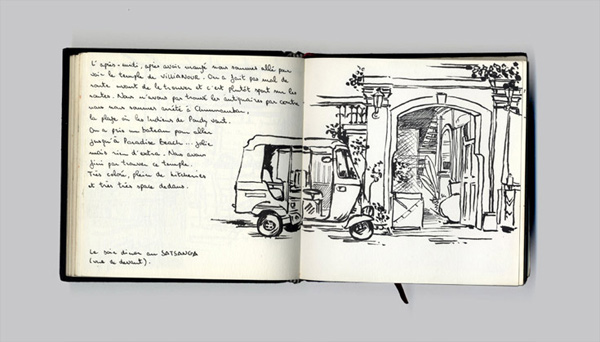 L'après-midi, après avoir mangé nous sommes allé pour
voir le temple de VILLIANOUR. On a fait pas mal de
route avant de le trouver et c'est plutôt sport sur les
routes. Nous n'avons pas trouvé les antiquaires par contre
nous nous sommes arrêté à Chunnambar,
la plage où les Indiens de Pondy vont.
On a pris un bateau pour aller
jusqu'à Paradise beach... jolie
mais rien d'extra. Nous avons
fini par trouver le temple.
Très coloré, plein de kitcheries
et très très space dedans.
Le soir diner au SATSANGA
(vue de devant).